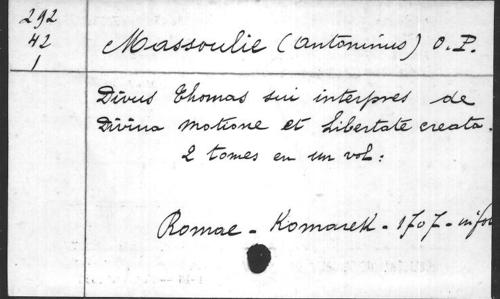 292
42
1
Massoulie (Antoninus) O. P.
Divus Thomas sui interpres de
Divina motione et libertate creata.
2 tomes en un vol:
Romae - Komarek - 1707 - in fol